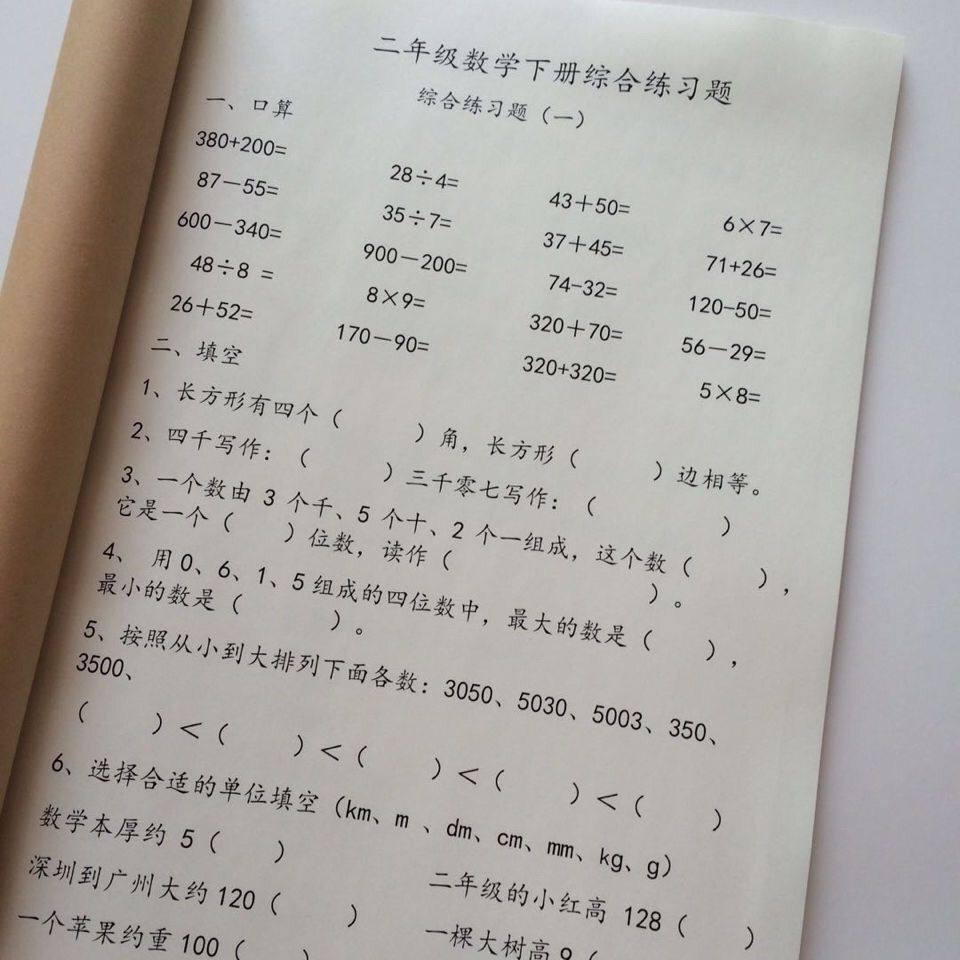 二年级数学下册综合练习题
综合练习题（一）
一、口算
380+200= 28÷4= 43＋50= 6×7=
87－55= 35÷7= 37＋45= 71+26=
600－340= 900－200= 74-32= 120-50=
48÷8 = 8×9= 320＋70= 56－29=
26＋52= 170－90= 320+320= 5×8=
二、填空
1、长方形有四个（ ）角，长方形（ ）边相等。
2、四千写作：（ ）三千零七写作：（ ）
3、一个数由 3 个千、5 个十、2 个一组成，这个数（ ），
它是一个（ ）位数，读作（ ）。
4、 用 0、6、1、5 组成的四位数中，最大的数是（ ），
最小的数是（ ）。
5、按照从小到大排列下面各数：3050、5030、5003、350、
3500、
（ ）＜（ ）＜（ ）＜（ ）＜（ ）
6、选择合适的单位填空（km、m 、dm、cm、mm、kg、g）
数学本厚约 5（ ） 二年级的小红高 128（ ）
深圳到广州大约 120（ ） 一棵大树高 9（
一个苹果约重 100（ ）